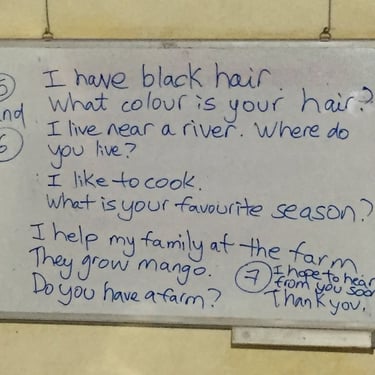 5 I have black hair.
and What colour is your hair?
6 I live near a river. Where do
you live?
I like to cook.
What is your favourite season?
I help my family at the farm.
They grow mango.
Do you have a farm?
7 I hope to hear
from you soon
Thank you.